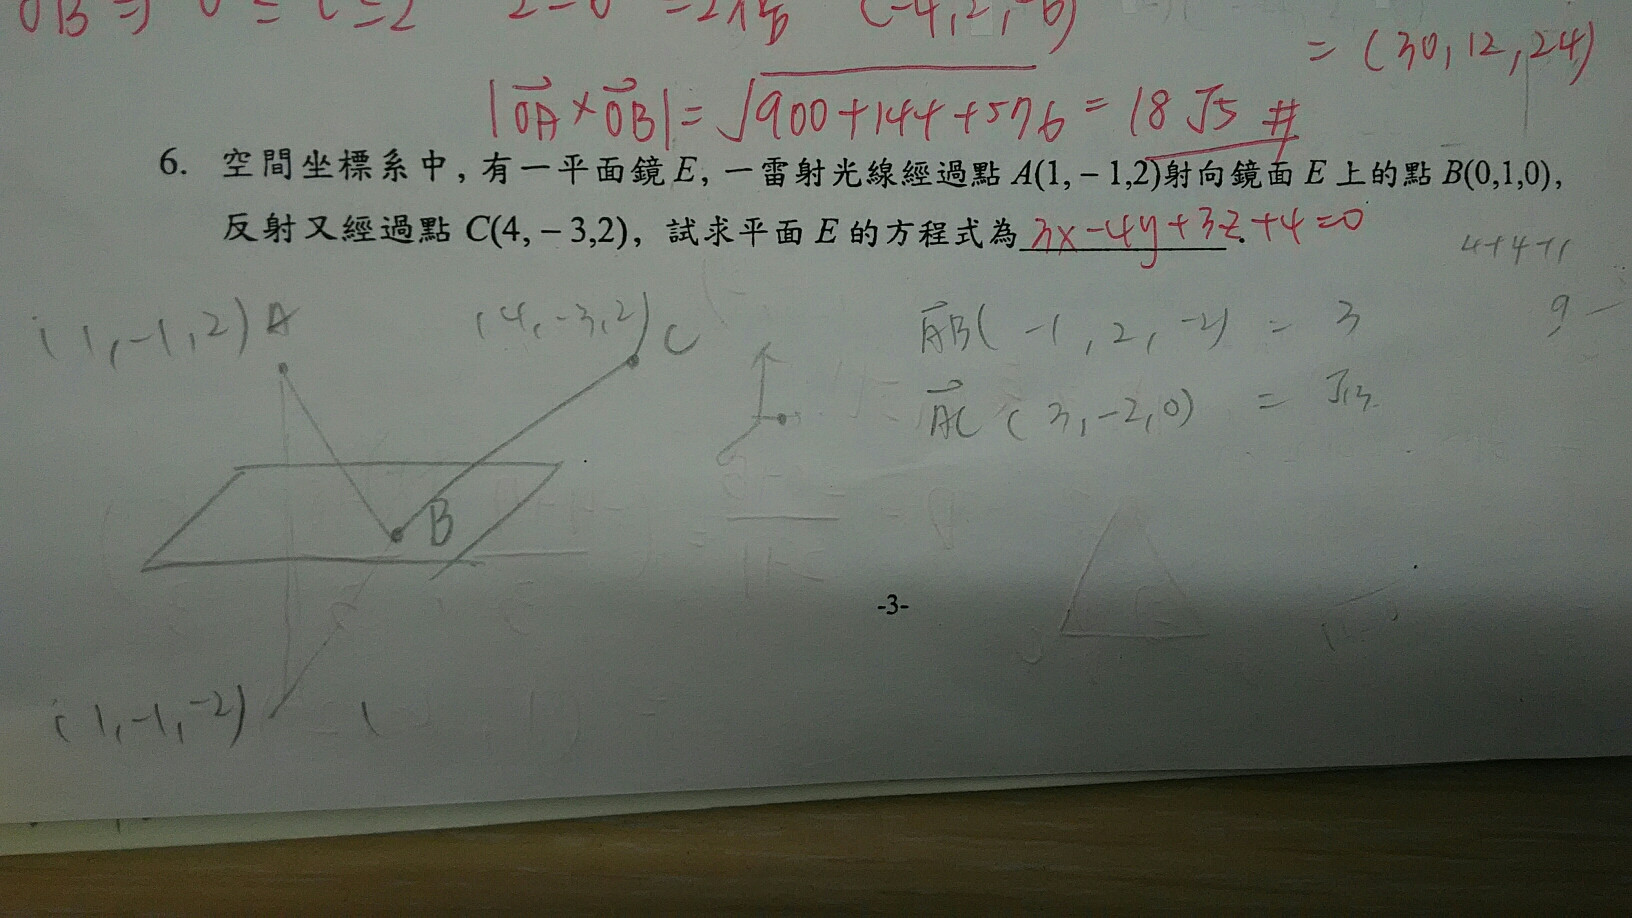 = (30,12,24)
|OA×OB|= √900+144+576 = 18√5 #
6. 空間坐標系中, 有一平面鏡E, 一雷射光線經過點 A(1,−1,2)射向鏡面 E 上的點 B(0,1,0),
反射又經過點 C(4,−3,2), 試求平面 E 的方程式為 3x-4y+3z+4=0.
4+4+1
9
(1,-1,2) A
(4,-3,2) C
AB(-1,2,-2) = 3
AC(3,-2,0) = √13
B
-3-
(1,-1,-2)